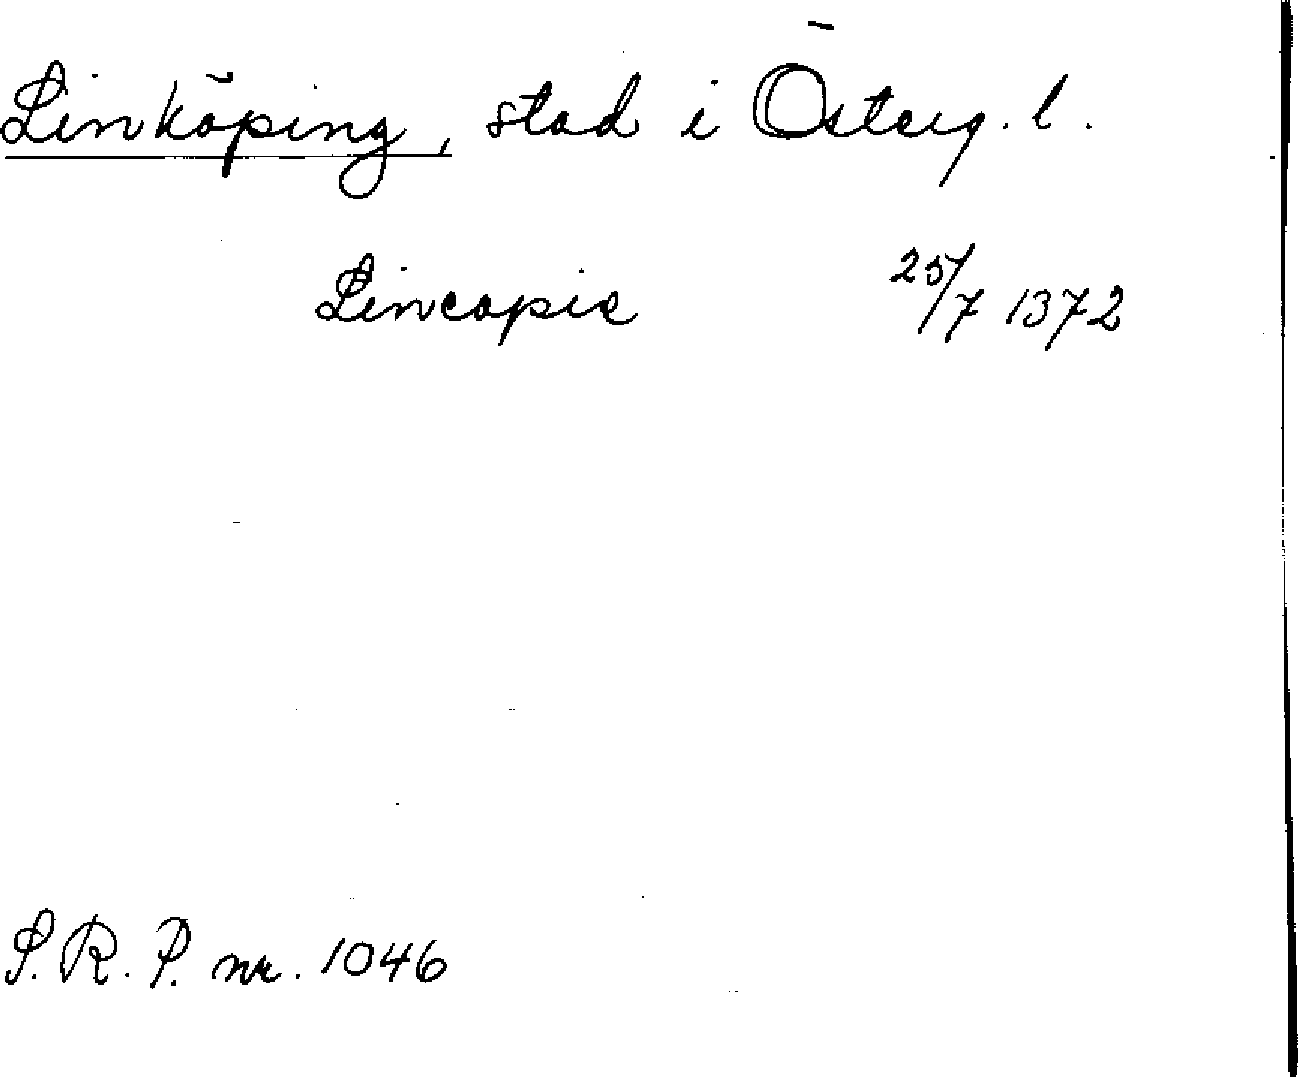 Linköping, stad i Österg. l.
Lincopie 25/7 1372
S. R. P. nr. 1046